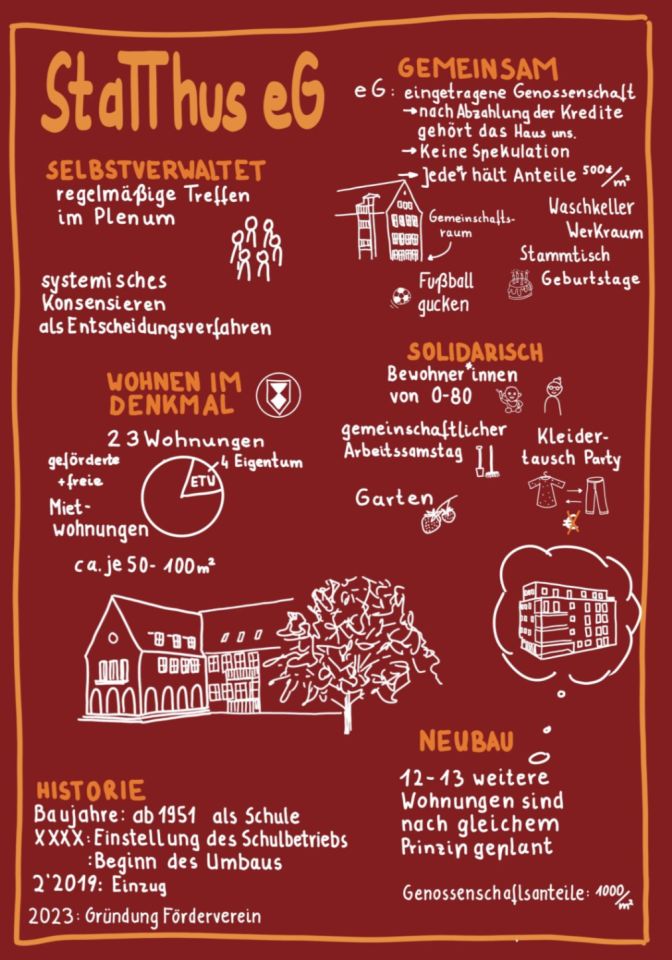 StaTThus eG
SELBSTVERWALTET
regelmäßige Treffen
im Plenum
systemisches
Konsensieren
als Entscheidungsverfahren
GEMEINSAM
eG: eingetragene Genossenschaft
→ nach Abzahlung der Kredite
gehört das Haus uns.
→ Keine Spekulation
→ jede*r hält Anteile 500€/m²
Gemeinschafts-
raum
Waschkeller
Werkraum
Stammtisch
Geburtstage
Fußball
gucken
WOHNEN IM
DENKMAL
23 Wohnungen
geförderte
+freie
Miet-
wohnungen
ETW
4 Eigentum
ca. je 50-100m²
SOLIDARISCH
Bewohner*innen
von 0-80
gemeinschaftlicher
Arbeitssamstag
Kleider-
tausch Party
€
Garten
HISTORIE
Baujahre: ab 1951 als Schule
XXXX: Einstellung des Schulbetriebs
: Beginn des Umbaus
2'2019: Einzug
2023: Gründung Förderverein
NEUBAU
12-13 weitere
Wohnungen sind
nach gleichem
Prinzip geplant
Genossenschaftsanteile: 1000/m²